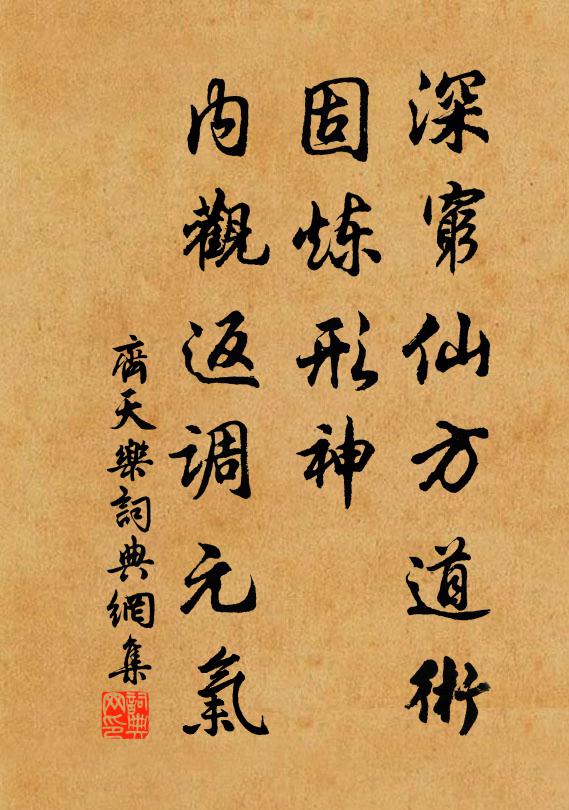 深窮仙方道術
固炼形神
内觀返調元氣
齊天樂詞典網集
詞典網印